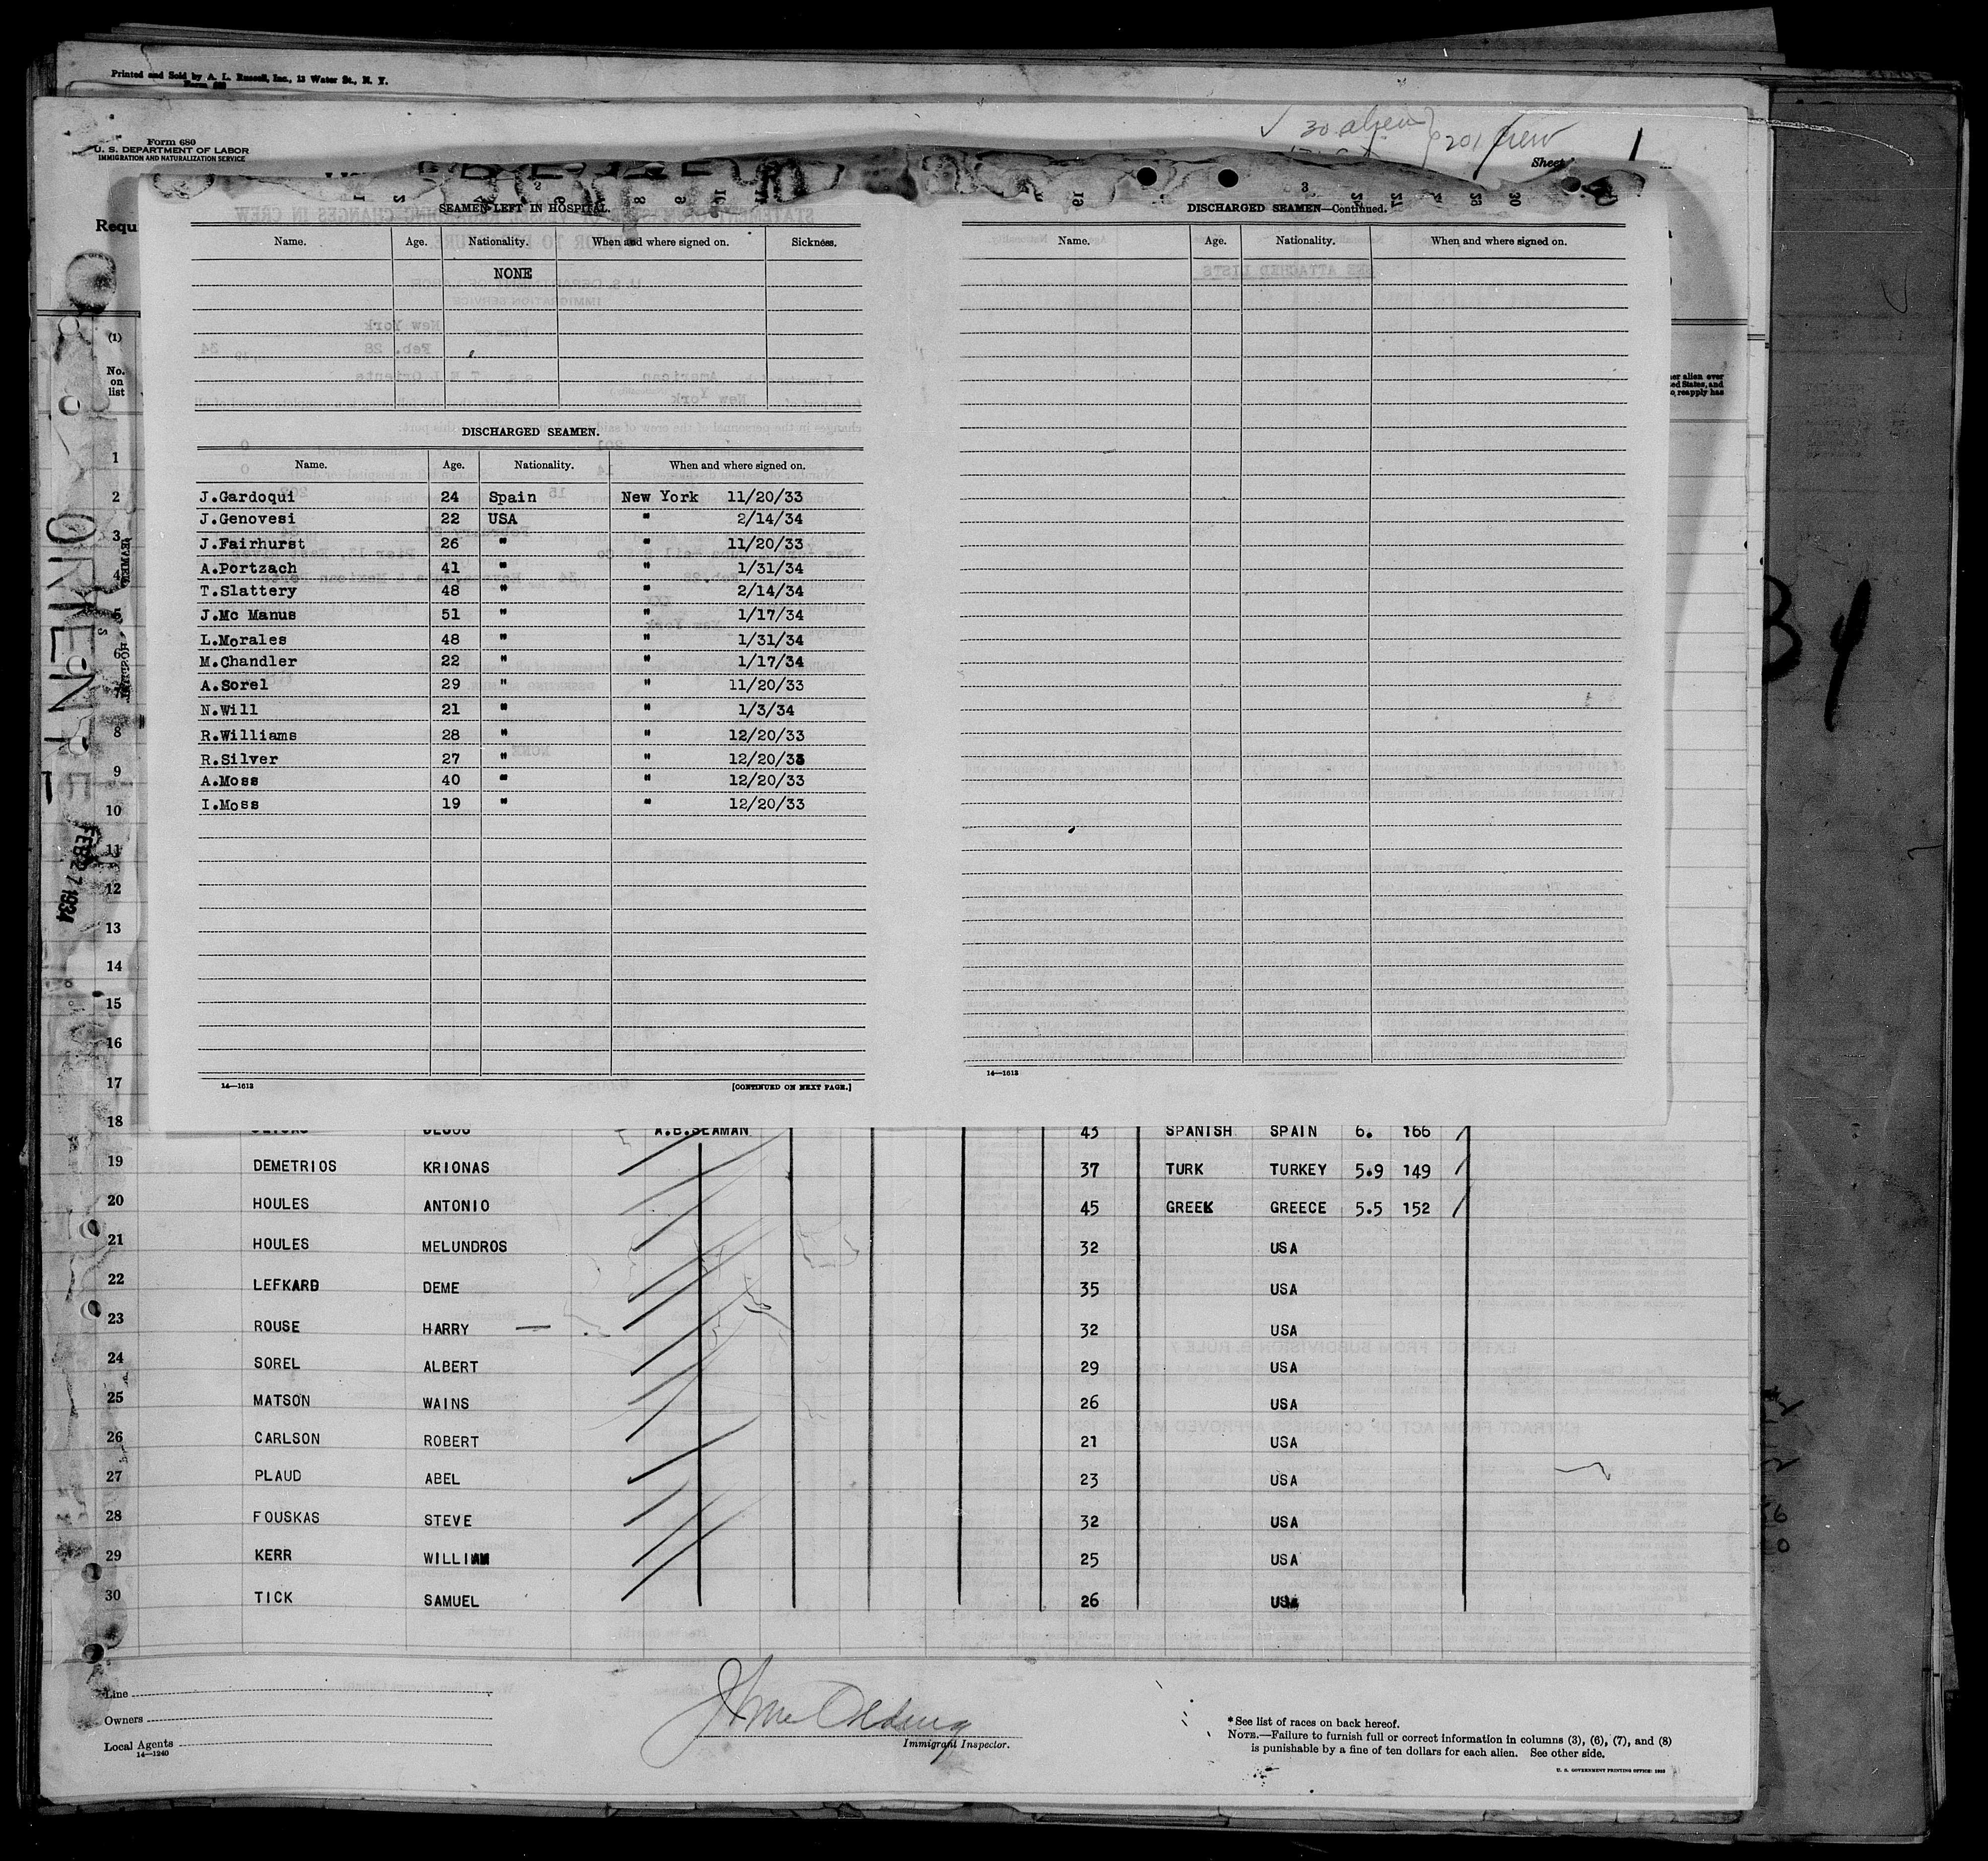 Printed and Sold by A. L. Russell, Inc., 13 Water St., N. Y.
Form 680
U. S. DEPARTMENT OF LABOR
IMMIGRATION AND NATURALIZATION SERVICE
✓ 30 alien
201 crew
Sheet 1
Requ
SEAMEN LEFT IN HOSPITAL.
Name. Age. Nationality. When and where signed on. Sickness.
NONE
DISCHARGED SEAMEN.
Name. Age. Nationality. When and where signed on.
J.Gardoqui 24 Spain New York 11/20/33
J.Genovesi 22 USA " 2/14/34
J.Fairhurst 26 " " 11/20/33
A.Portzach 41 " " 1/31/34
T.Slattery 48 " " 2/14/34
J.Mc Manus 51 " " 1/17/34
L.Morales 48 " " 1/31/34
M.Chandler 22 " " 1/17/34
A.Sorel 29 " " 11/20/33
N.Will 21 " " 1/3/34
R.Williams 28 " " 12/20/33
R.Silver 27 " " 12/20/33
A.Moss 40 " " 12/20/33
I.Moss 19 " " 12/20/33
14—1613 [CONTINUED ON NEXT PAGE.]
DISCHARGED SEAMEN—Continued.
Name. Age. Nationality. When and where signed on.
14—1613
(1)
No.
on
list
her alien ever
ed States, and
o, reapply has
1
2
3
4
5
6
7
8
9
10
11
12
13
14
15
16
17
ORIENTE
FEB 27 1934
34
18 A.B.SEAMAN 43 SPANISH SPAIN 6. 166
19 DEMETRIOS KRIONAS 37 TURK TURKEY 5.9 149
20 HOULES ANTONIO 45 GREEK GREECE 5.5 152
21 HOULES MELUNDROS 32 USA
22 LEFKARD DEME 35 USA
23 ROUSE HARRY — 32 USA
24 SOREL ALBERT 29 USA
25 MATSON WAINS 26 USA
26 CARLSON ROBERT 21 USA
27 PLAUD ABEL 23 USA
28 FOUSKAS STEVE 32 USA
29 KERR WILLIAM 25 USA
30 TICK SAMUEL 26 USA
Line
Owners
Local Agents
14—1240
Immigrant Inspector.
*See list of races on back hereof.
NOTE.—Failure to furnish full or correct information in columns (3), (6), (7), and (8)
is punishable by a fine of ten dollars for each alien. See other side.
U. S. GOVERNMENT PRINTING OFFICE: 1933